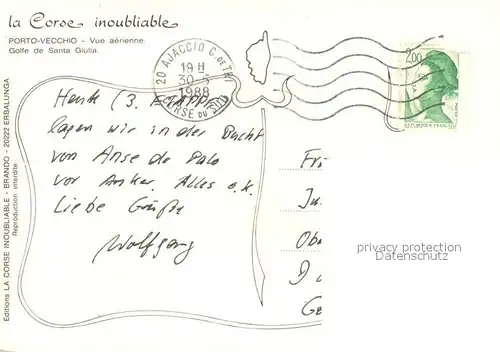 la Corse inoubliable
PORTO-VECCHIO - Vue aérienne.
Golfe de Santa Giulia.
20 AJACCIO C. DE TRI
19 H
30-5
1988
CORSE DU SUD
2,00
REPUBLIQUE FRANÇAISE
Heute (3.
lagen wir in der Bucht
von Anse de Palo
vor Anker. Alles o.k.
Liebe Grüße
Wolfgang
Editions LA CORSE INOUBLIABLE - BRANDO - 20222 ERBALUNGA
Reproduction interdite
privacy protection
Datenschutz